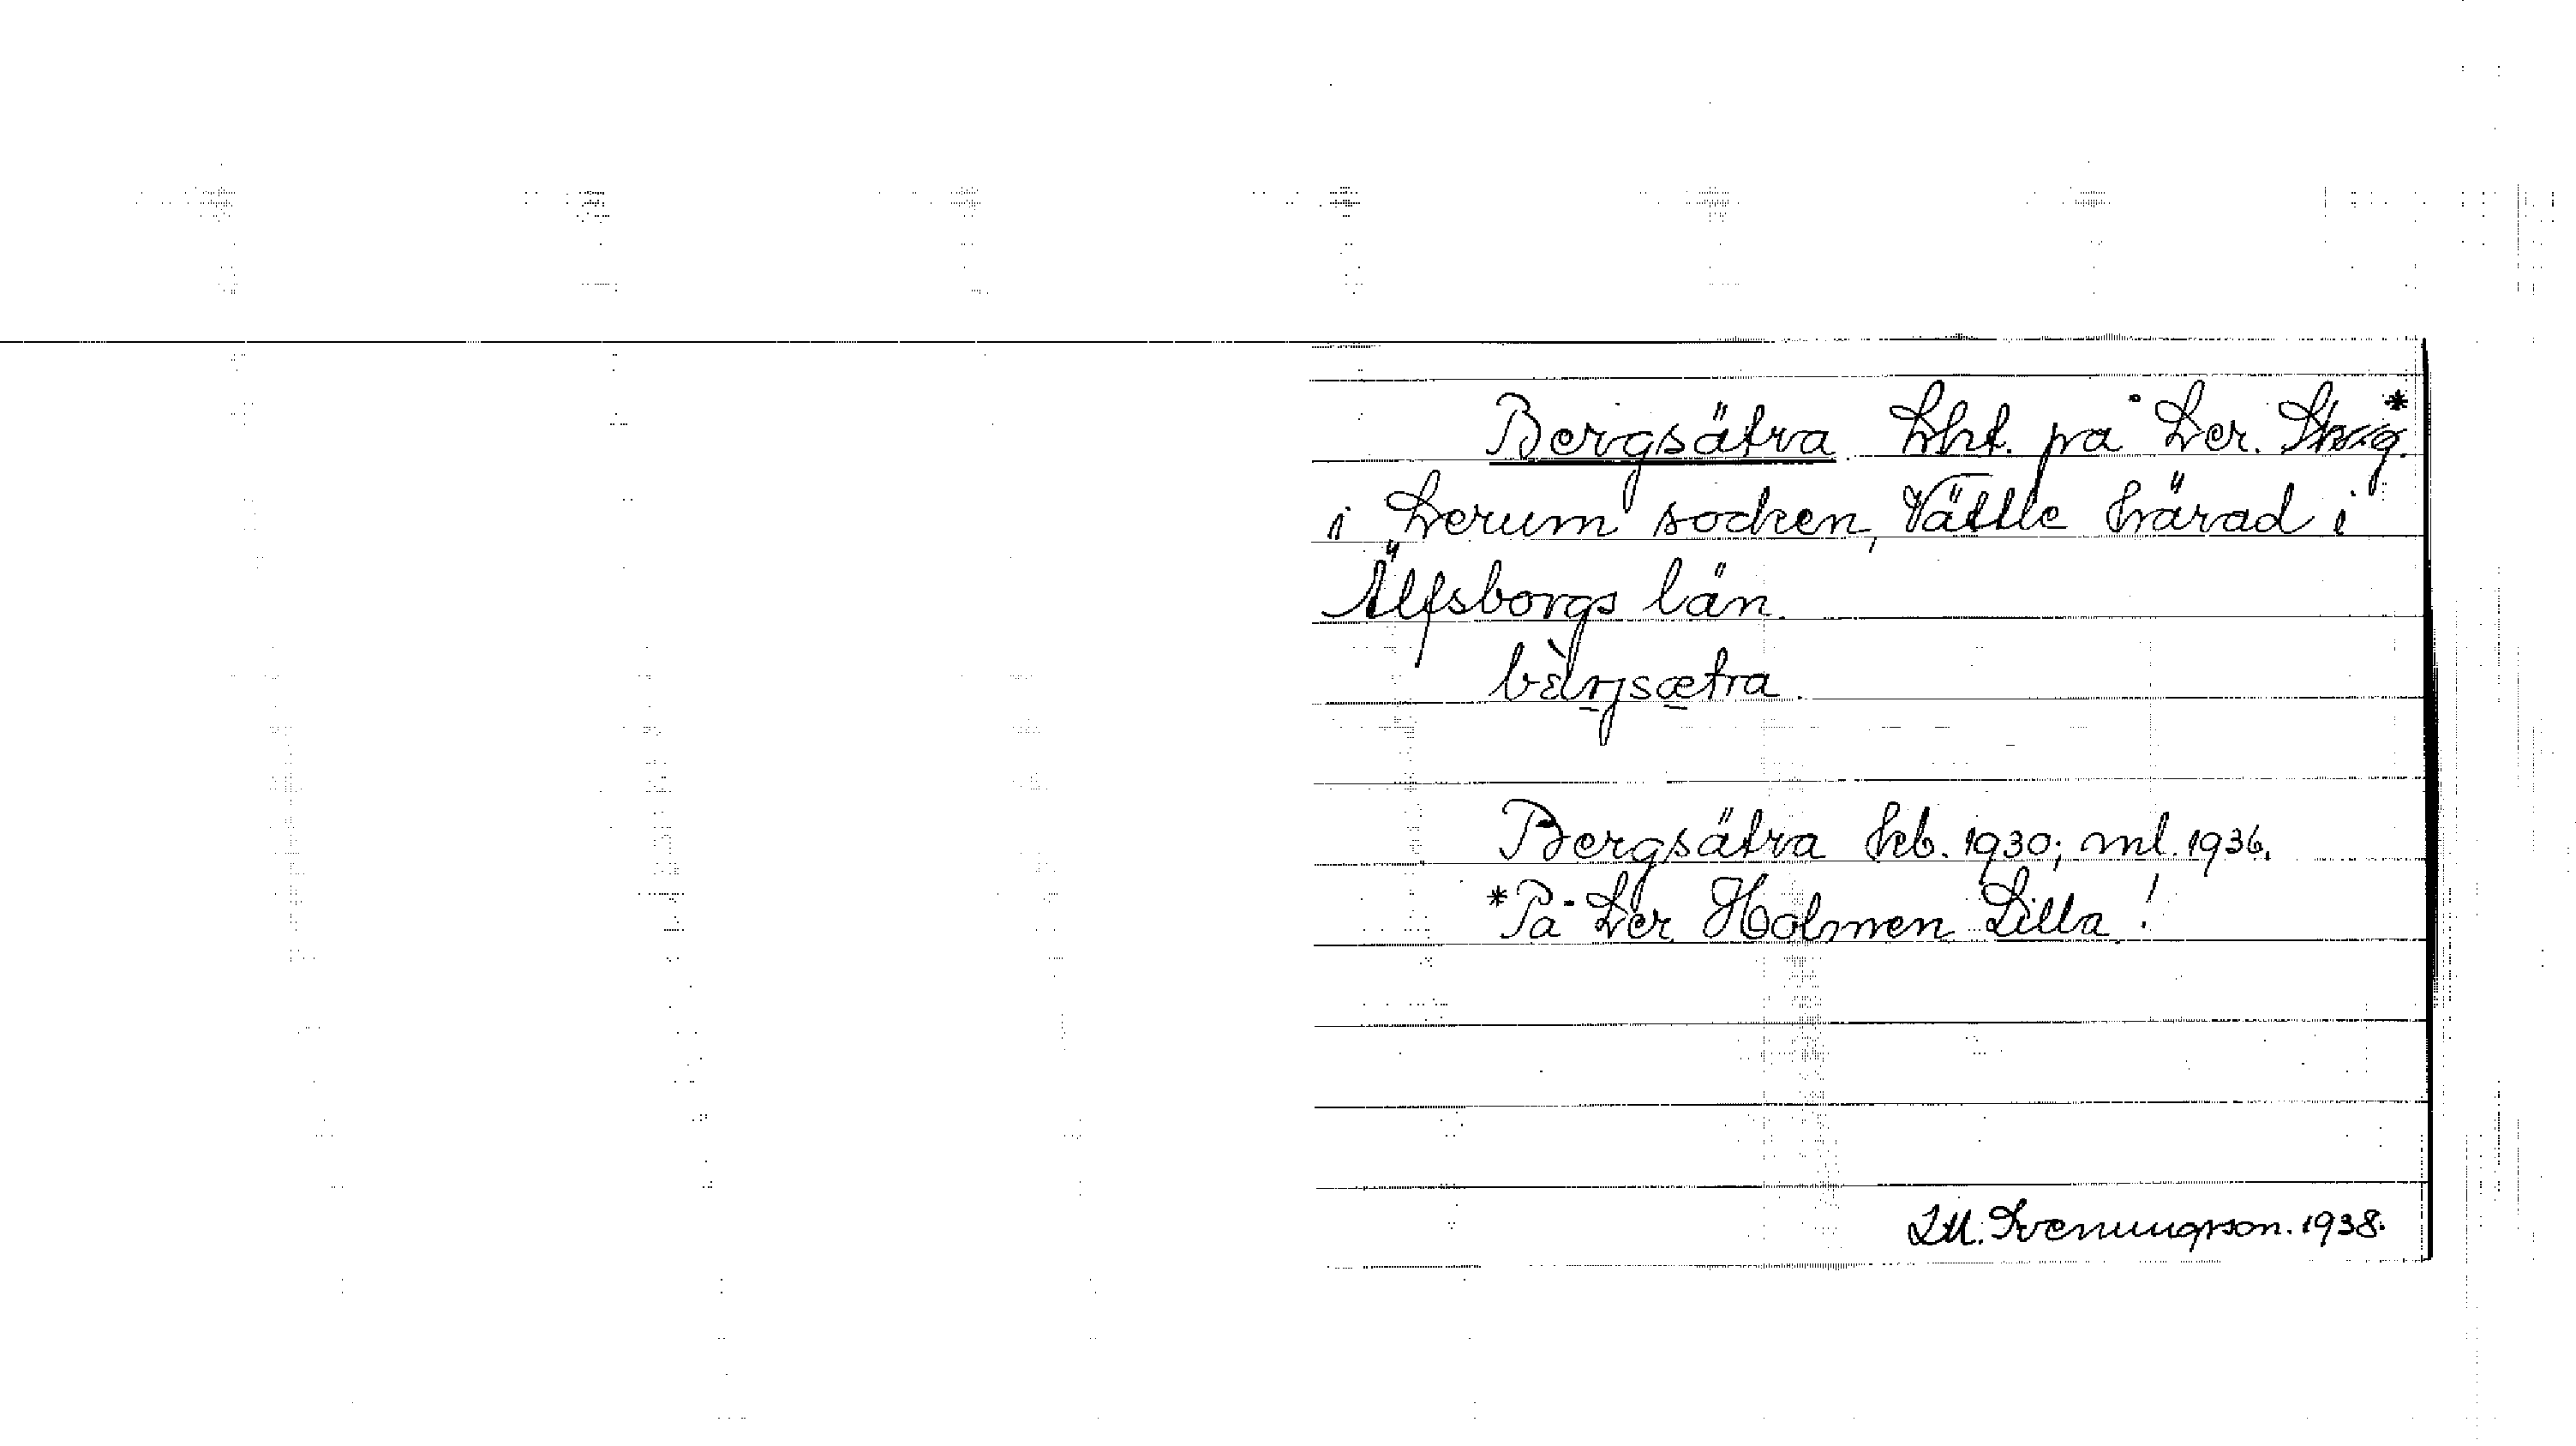 Bergsätra Lht. på Ler. Skrig.*
i Lerum socken, Vättle härad i
Älfsborgs län.
bèrjsætra.
Bergsätra hcb. 1930; ml. 1936.
*På Ler Holmen Lilla!
I.M. Svenungsson. 1938.